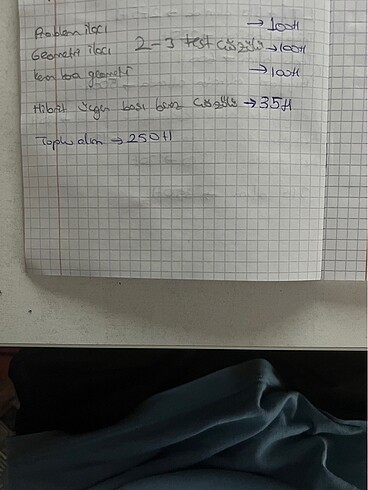 Problem ilacı → 100tl
Geometri ilacı 2-3 test çözülü → 100tl
Kemboa geometri → 100tl
Hibrit üçgen bası biraz çözülü → 35tl
Toplu alım → 250tl